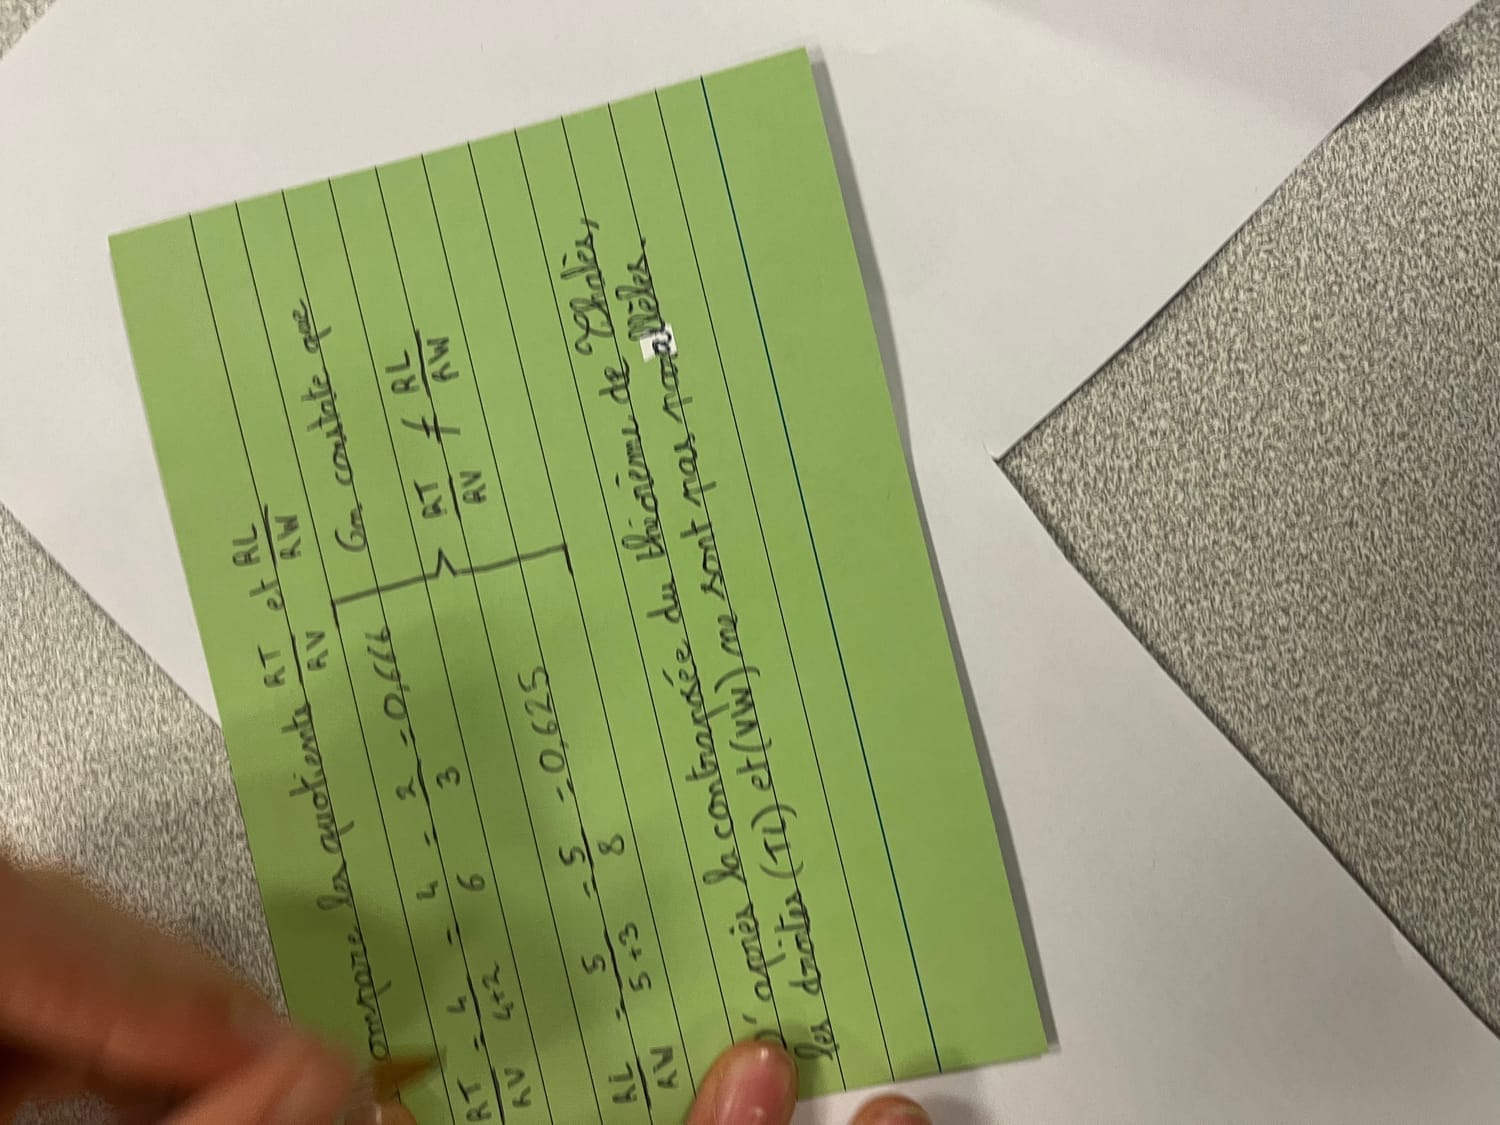 ompare les quotients RT/RV et RL/RW
RT/RV = 4/4+2 = 4/6 = 2/3 = 0,666
RL/RW = 5/5+3 = 5/8 = 0,625
On constate que
RT/RV ≠ RL/RW
D'après la contraposée du théorème de Thalès,
les droites (TL) et (VW) ne sont pas parallèles.